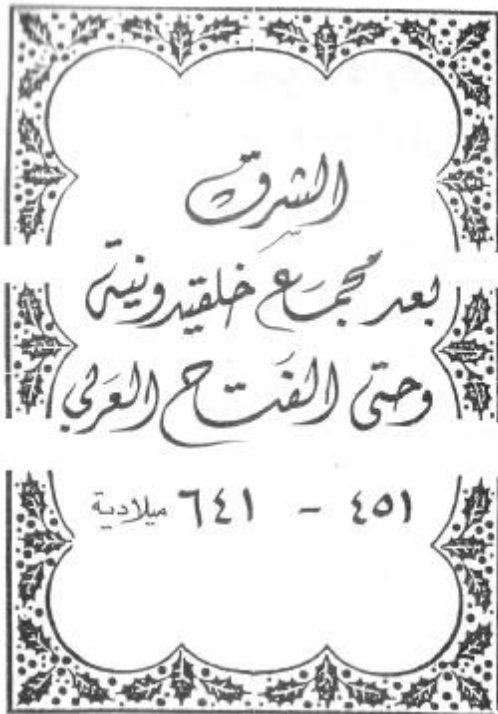 الشرق
بعد مجمع خلقيدونية
وحتى الفتح العربي
٤٥١ - ٦٤١ ميلادية